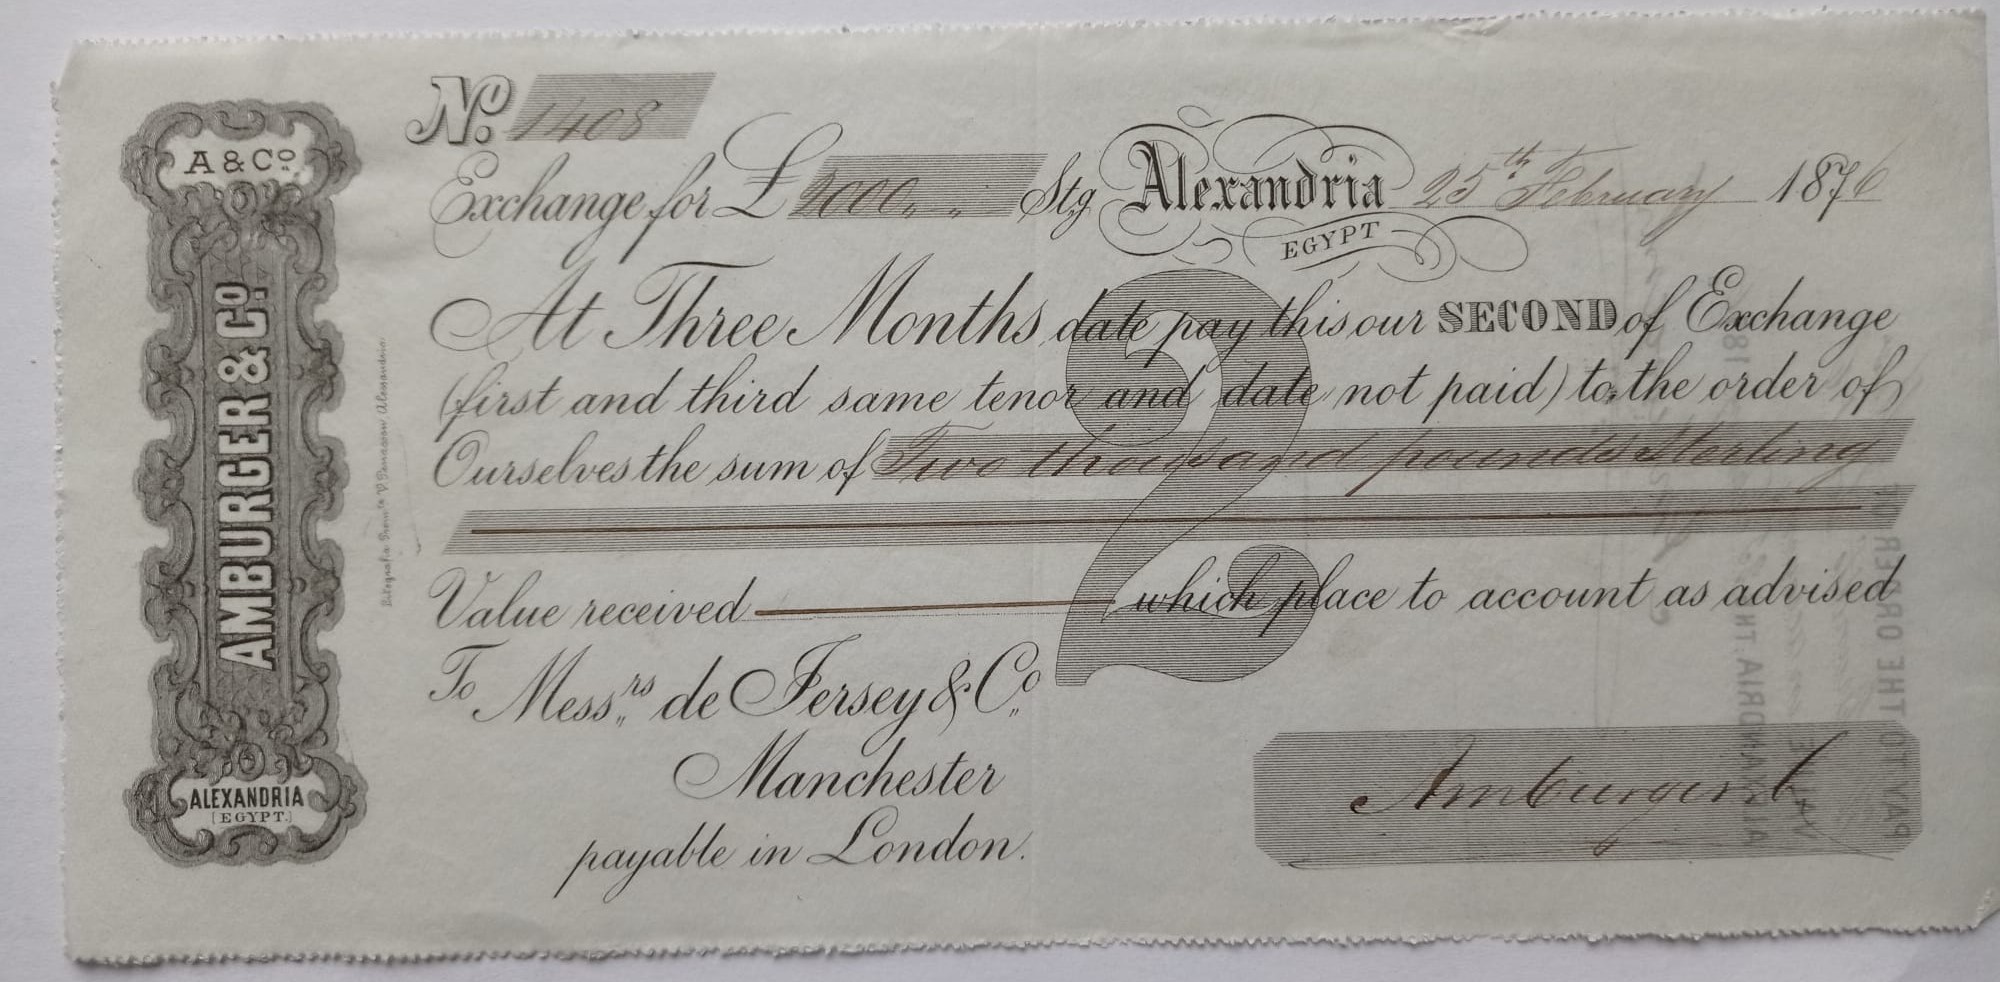 No. 1408
A & Co.
AMBURGER & Co.
ALEXANDRIA
[EGYPT.]
Exchange for £ 2000 „ „ Stg Alexandria 25th February 1876
EGYPT
At Three Months date pay this our SECOND of Exchange
(first and third same tenor and date not paid) to the order of
Ourselves the sum of Two thousand pounds Sterling
2
Value received which place to account as advised
To Messrs de Jersey & Co.
Manchester
payable in London.
PAY TO THE ORDER O